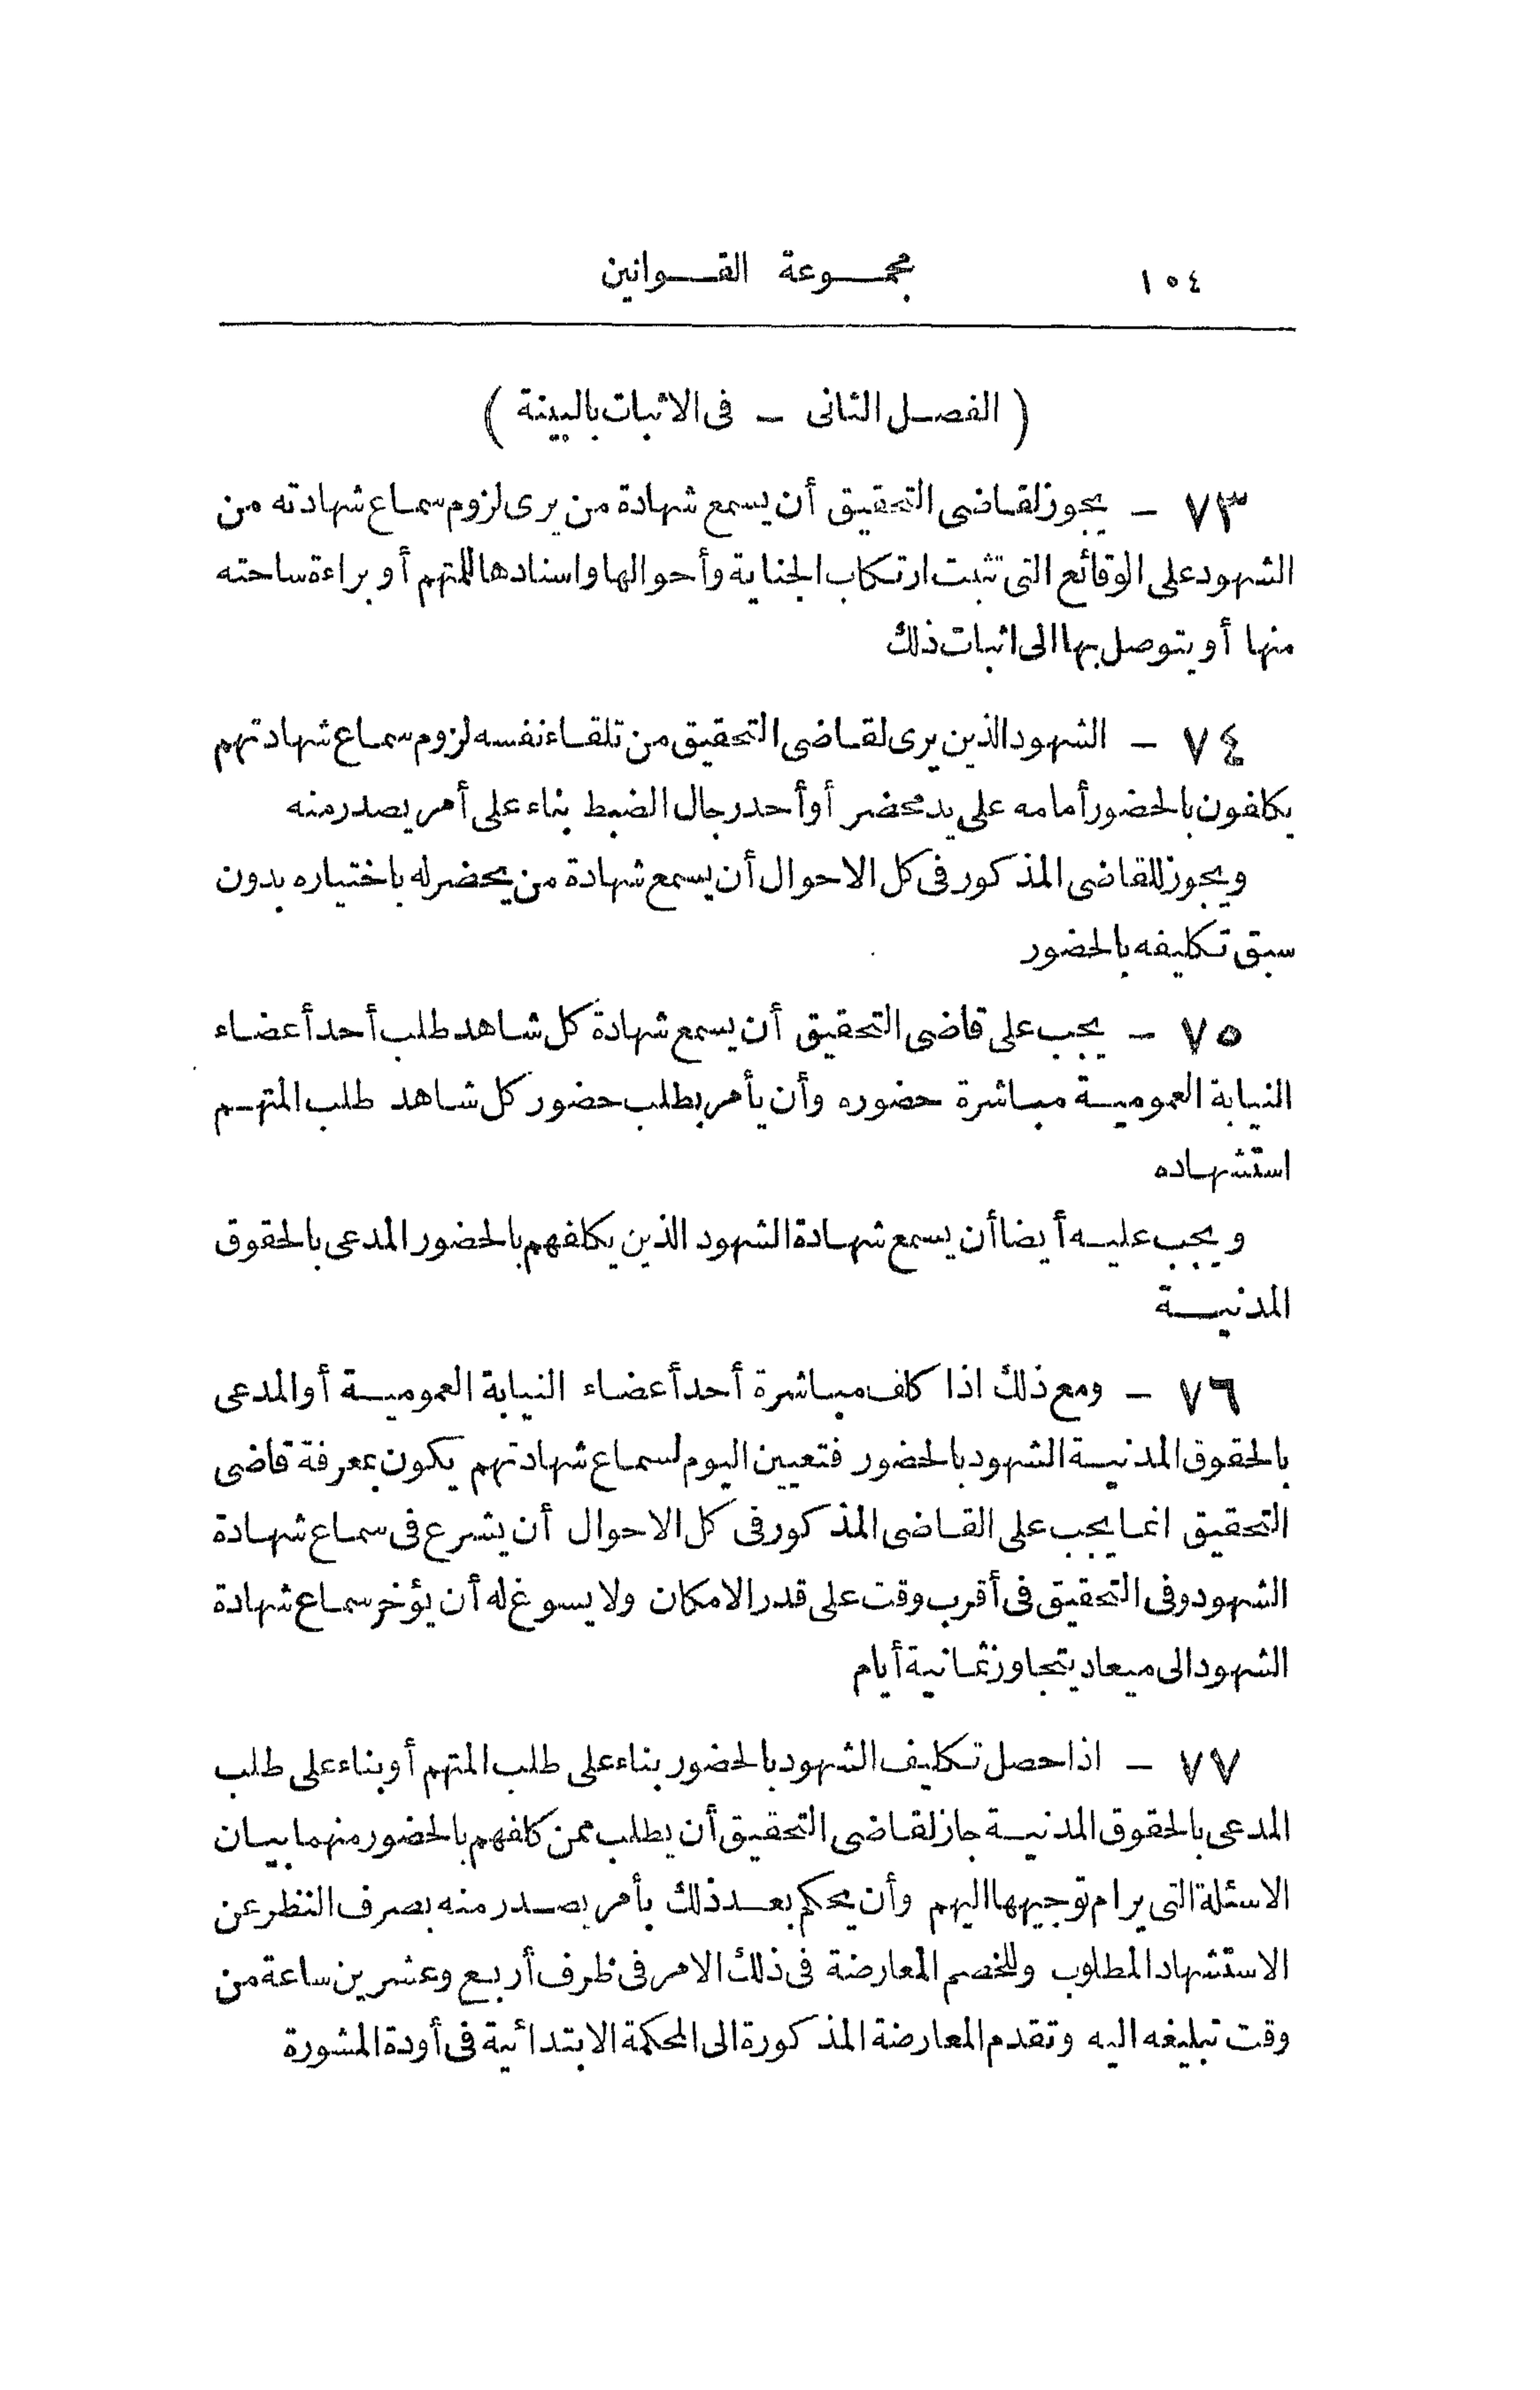 ١٥٤ مجموعة القوانين
( الفصل الثانى – فى الاثبات بالبينة )
٧٣ – يجوز لقاضى التحقيق أن يسمع شهادة من يرى لزوم سماع شهادته من
الشهود على الوقائع التى تثبت ارتكاب الجناية وأحوالها واسنادها للمتهم أو براءة ساحته
منها أو يتوصل بها الى اثبات ذلك
٧٤ – الشهود الذين يرى لقاضى التحقيق من تلقاء نفسه لزوم سماع شهادتهم
يكلفون بالحضور أمامه على يد محضر أو أحد رجال الضبط بناء على أمر يصدر منه
ويجوز للقاضى المذكور فى كل الاحوال أن يسمع شهادة من يحضر له باختياره بدون
سبق تكليفه بالحضور
٧٥ – يجب على قاضى التحقيق أن يسمع شهادة كل شاهد طلب أحد أعضاء
النيابة العمومية مباشرة حضوره وأن يأمر بطلب حضور كل شاهد طلب المتهم
استشهاده
ويجب عليه أيضا أن يسمع شهادة الشهود الذين يكلفهم بالحضور المدعى بالحقوق
المدنية
٧٦ – ومع ذلك اذا كلف مباشرة أحد أعضاء النيابة العمومية أو المدعى
بالحقوق المدنية الشهود بالحضور فتعيين اليوم لسماع شهادتهم يكون بمعرفة قاضى
التحقيق انما يجب على القاضى المذكور فى كل الاحوال أن يشرع فى سماع شهادة
الشهود وفى التحقيق فى أقرب وقت على قدر الامكان ولا يسوغ له أن يؤخر سماع شهادة
الشهود الى ميعاد يتجاوز ثمانية أيام
٧٧ – اذا حصل تكليف الشهود بالحضور بناء على طلب المتهم أو بناء على طلب
المدعى بالحقوق المدنية جاز لقاضى التحقيق أن يطلب ممن كلفهم بالحضور منهما بيان
الاسئلة التى يرام توجيهها اليهم وأن يحكم بعد ذلك بأمر يصدر منه بصرف النظر عن
الاستشهاد المطلوب وللخصم المعارضة فى ذلك الامر فى ظرف أربع وعشرين ساعة من
وقت تبليغه اليه وتقدم المعارضة المذكورة الى المحكمة الابتدائية فى أودة المشورة